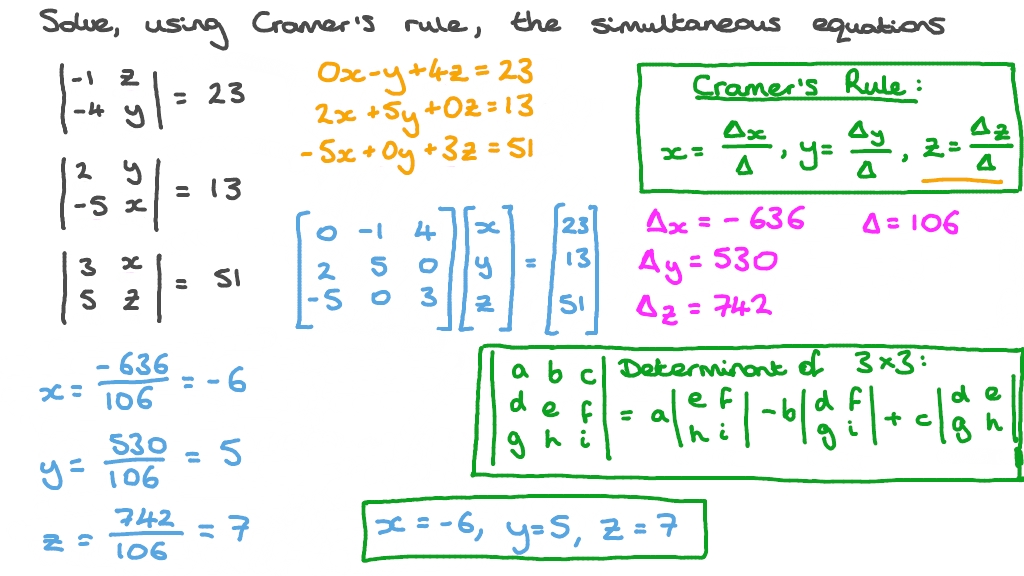 Solve, using Cramer's rule, the simultaneous equations
|-1 z|
|-4 y| = 23
|2 y|
|-5 x| = 13
|3 x|
|5 z| = 51
0x-y+4z=23
2x+5y+0z=13
-5x+0y+3z=51
Cramer's Rule:
x=Δx/Δ, y=Δy/Δ, z=Δz/Δ
[0 -1 4] [x] [23]
[2 5 0] [y] = [13]
[-5 0 3] [z] [51]
Δx = -636 Δ=106
Δy = 530
Δz = 742
x = -636/106 = -6
y = 530/106 = 5
z = 742/106 = 7
Determinant of 3×3:
|a b c|
|d e f| = a|e f| -b|d f| + c|d e|
|g h i| |h i| |g i| |g h|
x=-6, y=5, z=7